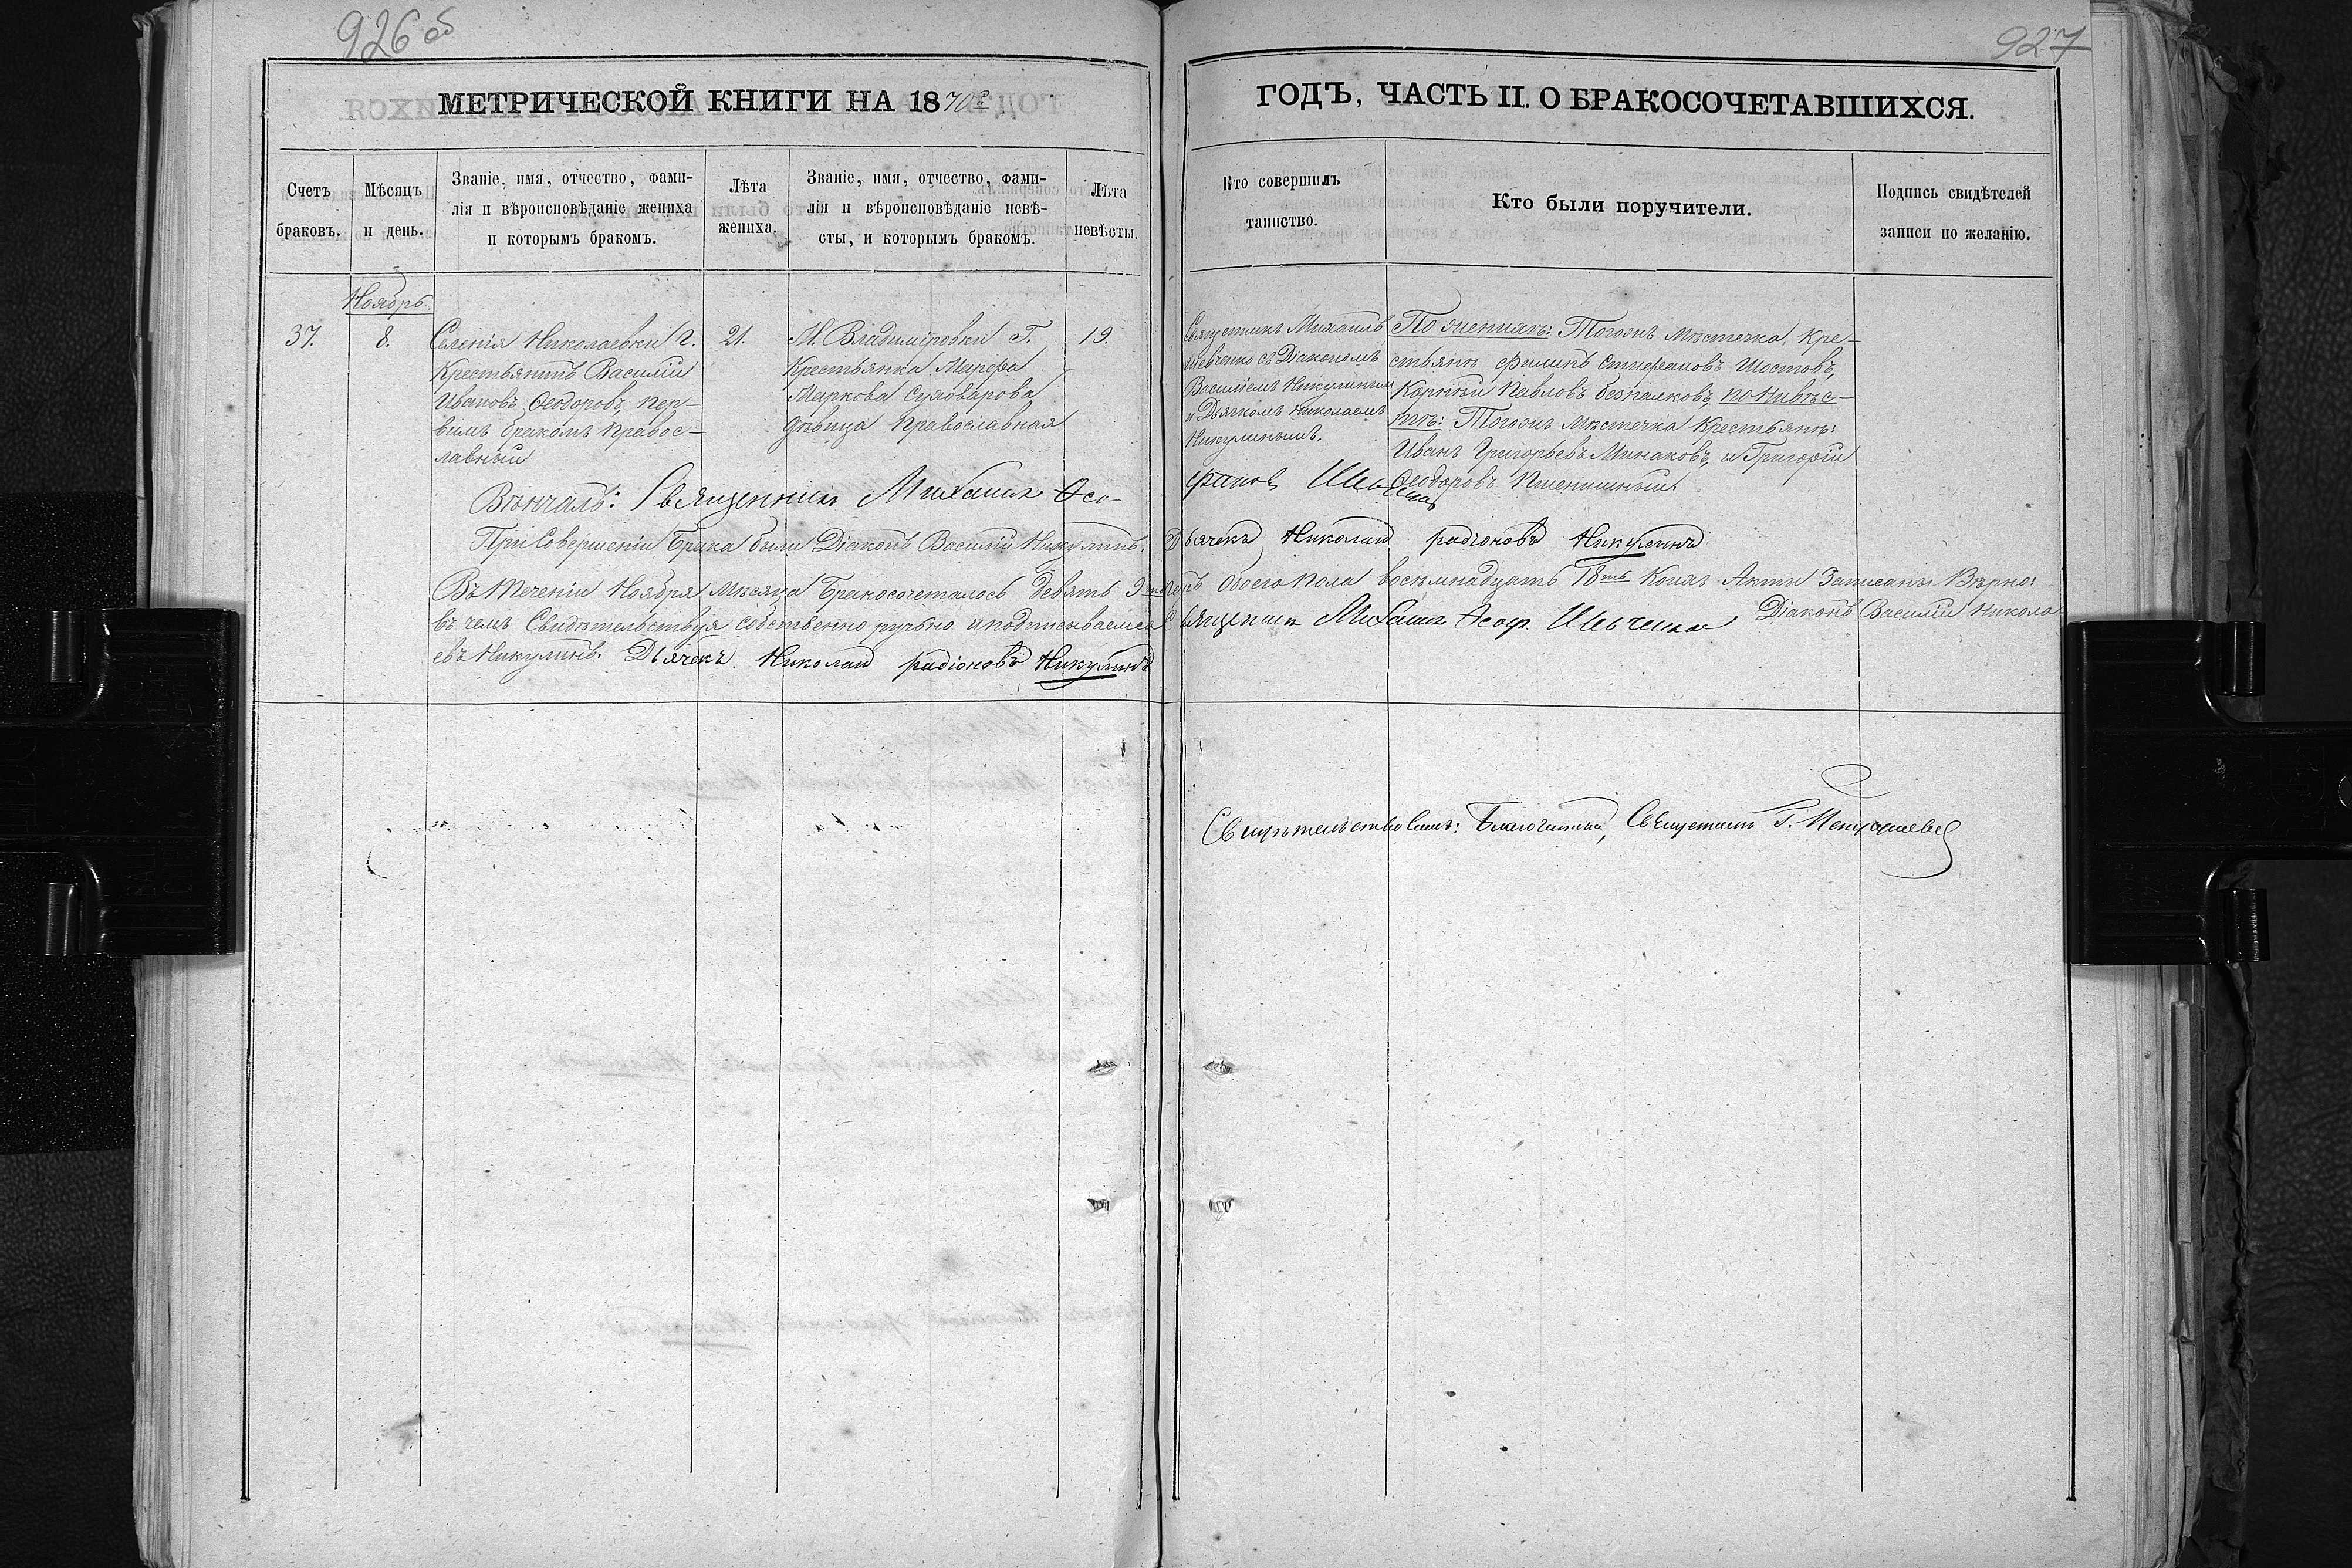 926 об
927
МЕТРИЧЕСКОЙ КНИГИ НА 1870й
ГОДЪ, ЧАСТЬ II. О БРАКОСОЧЕТАВШИХСЯ.
Счетъ браковъ.
Мѣсяцъ и день.
Званіе, имя, отчество, фами-
лія и вѣроисповѣданіе жениха
и которымъ бракомъ.
Лѣта жениха.
Званіе, имя, отчество, фами-
лія и вѣроисповѣданіе невѣ-
сты, и которымъ бракомъ.
Лѣта невѣсты.
Кто совершилъ
таинство.
Кто были поручители.
Подпись свидѣтелей
записи по желанію.
Ноябрь.
37.
8.
Селенія Николаевки Г.
Крестьянинъ Василій
Ивановъ Ѳеодоровъ, пер-
вымъ бракомъ Правос-
лавный
21.
М. Владиміровки Г.
Крестьянка Марфа
Маркова Суховарова
дѣвица Православная
19.
Священникъ Михаилъ
Шевченко съ Діакономъ
Василіемъ Никулинымъ
и Дьячкомъ Николаемъ
Никулинымъ.
По женихѣ: Тогожъ мѣстечка Кре-
стьяне Филипъ Стефановъ Шостовъ,
Корнѣй Павловъ Безпалковъ, по Невѣс-
тѣ: Тогожъ Мѣстечка Крестьяне:
Иванъ Григорьевъ Минаковъ, и Григорій
Ѳеодоровъ Пшенишный.
Вѣнчалъ: Священникъ Михаилъ Ѳео-
фановъ
При Совершеніи Брака были Діаконъ Василій Никулинъ. Дьячекъ Николай радіоновъ Никулинъ
Въ теченіи Ноября Мѣсяца Бракосочеталось девять 9 паръ обоего пола восемнадцать 18ть Коихъ Акты Записаны Вѣрно:
въ чемъ Свидѣтельствуя собственно ручьно и подписываемся Священникъ Михаилъ Ѳеоф. Шевченко Діаконъ Василій Никола-
евъ Никулинъ. Дьячекъ. Николай радіоновъ Никулинъ
Свидѣтельствовалъ: Благочинный, Священникъ